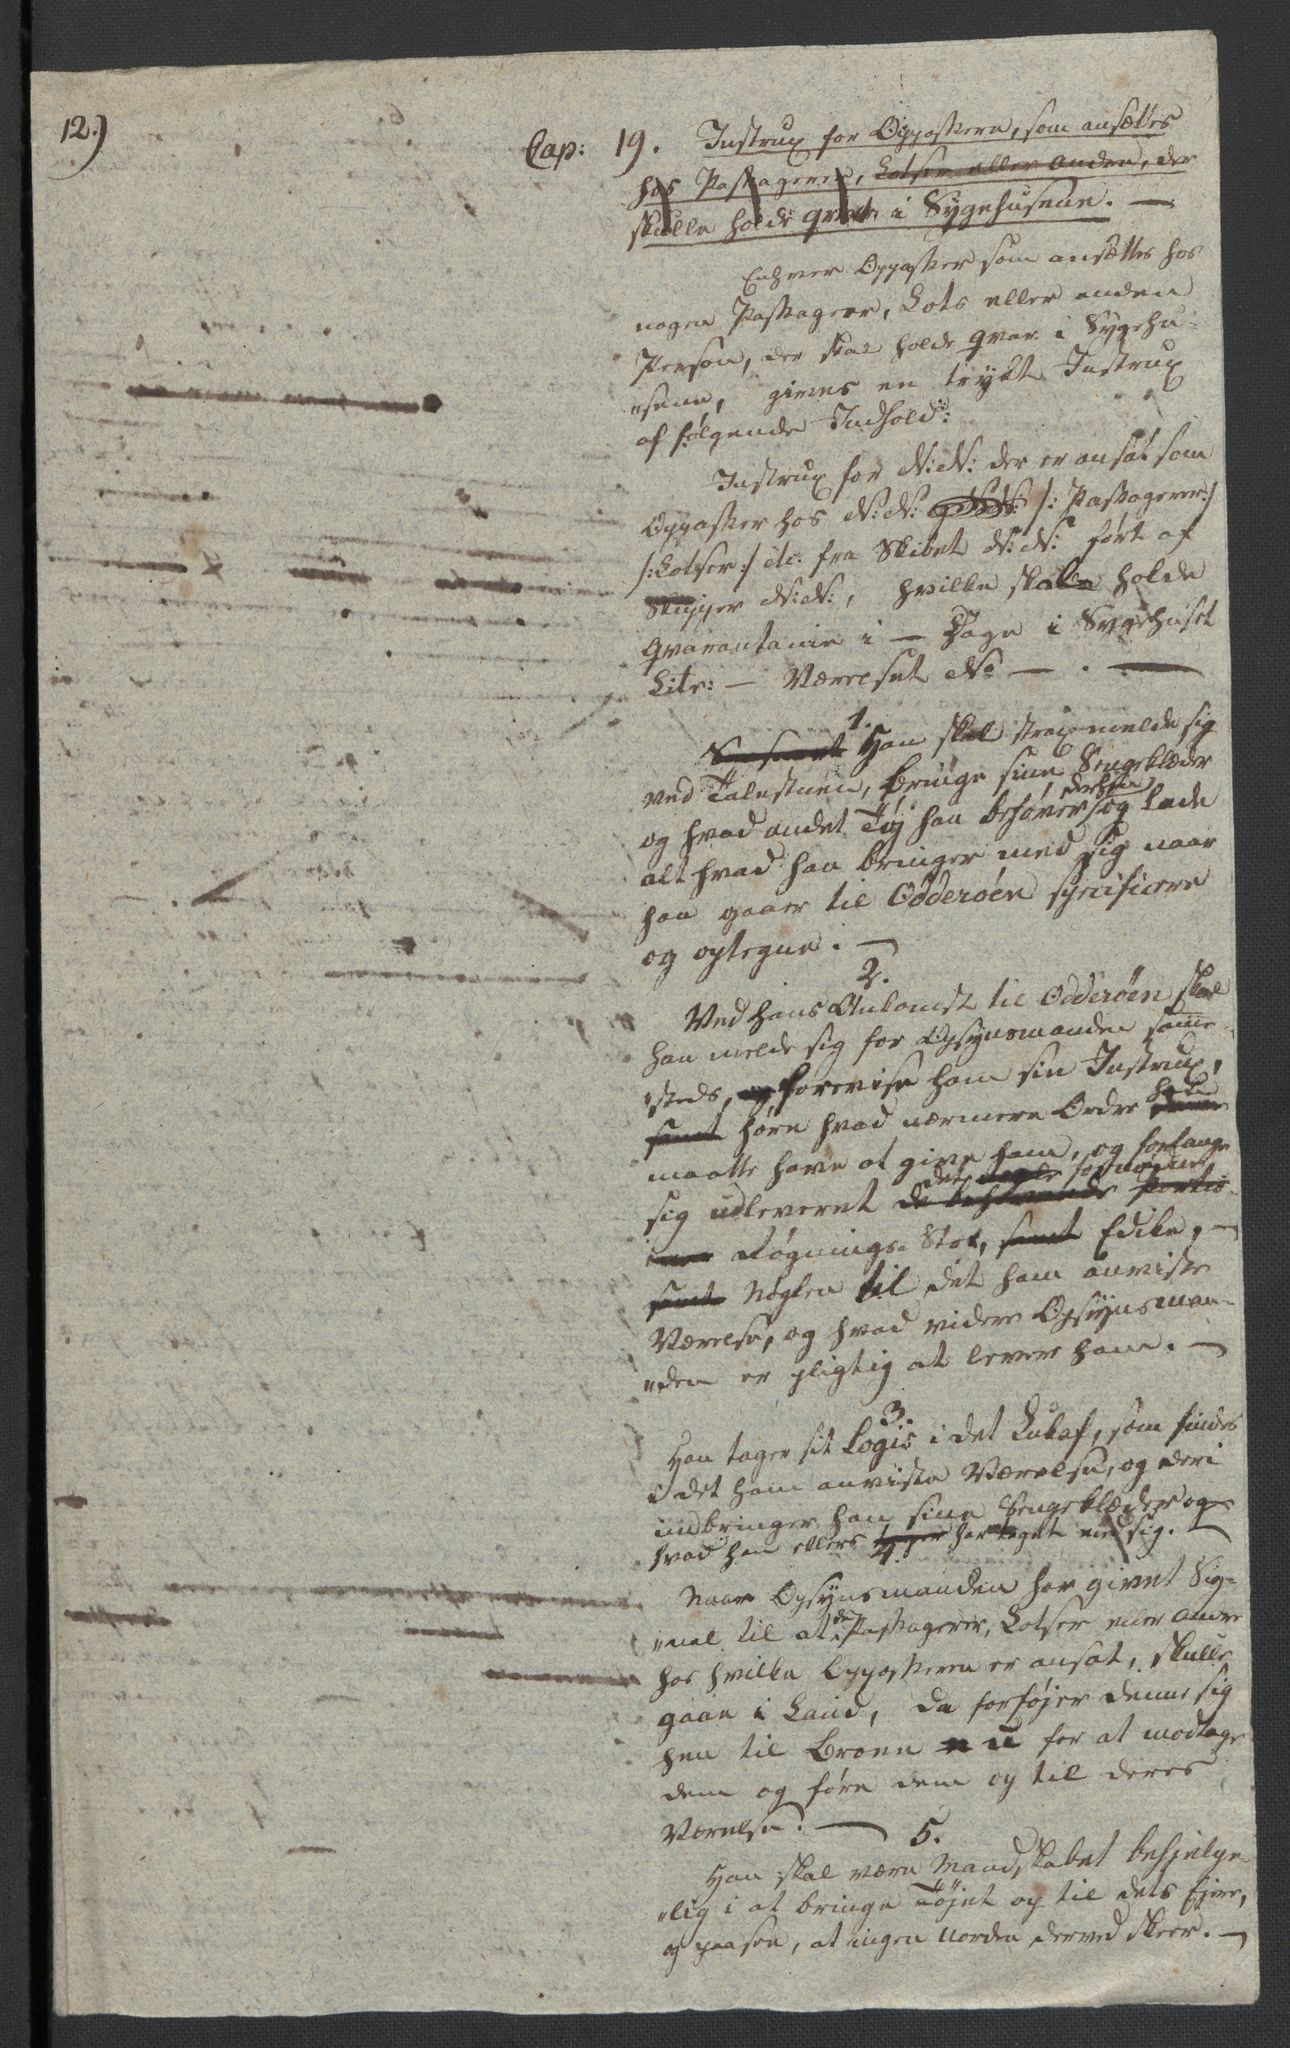 12.)
Cap: 19. Instrux for Oppassere, som ansættes
hos Passagerer, Lotser eller Andre, der
skulle holde qvar: i Sygehusene. —
Enhver Oppasser som ansættes hos
nogen Passageer, Lots eller anden
Person, der skal holde qvar: i Sygehu-
"sene, gives en trykt Instrux
af følgende Indhold:
Instrux for N:N: der er ansat som
Oppasser hos N:N: /: Passagerer:/
/:Lotser:/ etc: fra Skibet N:N: ført af
Skipper N:N:, hvilke skulle holde
Qvarantaine i — Dage i Sygehuset
Litr: — Værelset No — . —
1.
Han skal strax melde sig
ved Talestuen, bringe sine Sengeklæder
og hvad andet Tøj han behøver derhen og lade
alt hvad han bringer med sig naar
han gaaer til Odderøen specificere
og optegne. —
2.
Ved hans Ankomst til Odderøen skal
han melde sig for Opsynsmanden samme-
"steds, og forevise ham sin Instrux,
samt høre hvad nærmere Ordre
maatte have at give ham, og forlange
sig udleveret de behøvende det fornødne
Røgnings-Stof, samt Edike, —
samt Nøglen til det ham anviste
Værelse, og hvad videre Opsynsman-
"den er pligtig at levere ham. —
3.
Han tager sit Logis i det Lukaf, som findes
i det ham anviste Værelse, og deri
indbringer han sine Sengeklæder og
hvad han ellers har taget med sig.
4.
Naar Opsynsmanden har givet Sig-
"nal til at de Passagerer, Lotser eller Andre
hos hvilke Oppasseren er ansat, skulle
gaae i Land, da forføjer denne sig
hen til Broen for at modtage
dem og føre dem op til deres
Værelse. —
5.
Han skal være Mandskabet behjelpe-
"lig i at bringe Tøjet op til dets Ejere,
og paasee, at ingen Uorden derved skeer. —